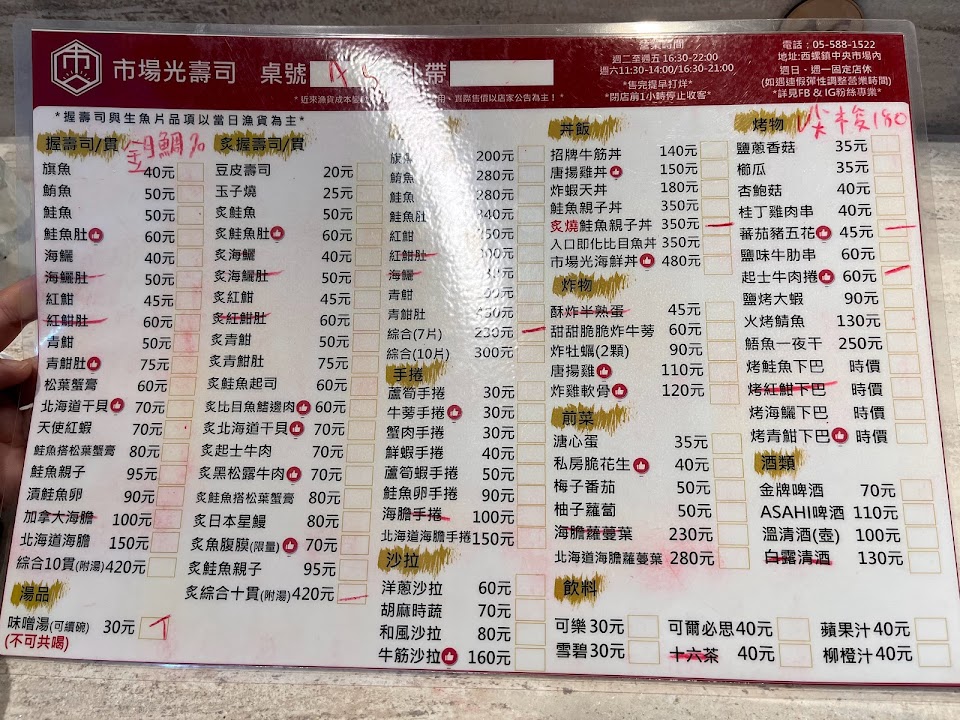 市場光壽司 桌號 外帶
*近來漁貨成本
實際售價以店家公告為主!*
營業時間
週二至週五 16:30-22:00
週六11:30-14:00/16:30-21:00
*售完提早打烊*
*閉店前1小時停止收客*
電話:05-588-1522
地址:西螺鎮中央市場內
週日、週一固定店休
(如遇連假彈性調整營業時間)
*詳見FB & IG粉絲專業*
*握壽司與生魚片品項以當日漁貨為主*
握壽司/貫
旗魚 40元
鮪魚 50元
鮭魚 50元
鮭魚肚 60元
海鱺 40元
海鱺肚 50元
紅魽 45元
紅魽肚 60元
青魽 50元
青魽肚 75元
松葉蟹膏 60元
北海道干貝 70元
天使紅蝦 70元
鮭魚搭松葉蟹膏 80元
鮭魚親子 95元
漬鮭魚卵 90元
加拿大海膽 100元
北海道海膽 150元
綜合10貫(附湯) 420元
湯品
味噌湯(可續碗) 30元
(不可共喝)
炙握壽司/貫
豆皮壽司 20元
玉子燒 25元
炙鮭魚 50元
炙鮭魚肚 60元
炙海鱺 40元
炙海鱺肚 50元
炙紅魽 45元
炙紅魽肚 60元
炙青魽 50元
炙青魽肚 75元
炙鮭魚起司 60元
炙比目魚鰭邊肉 60元
炙北海道干貝 70元
炙起士牛肉 70元
炙黑松露牛肉 70元
炙鮭魚搭松葉蟹膏 80元
炙日本星鰻 80元
炙魚腹膜(限量) 70元
炙鮭魚親子 95元
炙綜合十貫(附湯) 420元
旗魚 200元
鮪魚 280元
鮭魚 280元
鮭魚肚 340元
紅魽
紅魽肚
海鱺
青魽
青魽肚
綜合(7片) 230元
綜合(10片) 300元
手捲
蘆筍手捲 30元
牛蒡手捲 30元
蟹肉手捲 30元
鮮蝦手捲 40元
蘆筍蝦手捲 50元
鮭魚卵手捲 90元
海膽手捲 100元
北海道海膽手捲 150元
沙拉
洋蔥沙拉 60元
胡麻時蔬 70元
和風沙拉 80元
牛筋沙拉 160元
丼飯
招牌牛筋丼 140元
唐揚雞丼 150元
炸蝦天丼 180元
鮭魚親子丼 350元
炙燒鮭魚親子丼 350元
入口即化比目魚丼 350元
市場光海鮮丼 480元
炸物
酥炸半熟蛋 45元
甜甜脆脆炸牛蒡 60元
炸牡蠣(2顆) 90元
唐揚雞 110元
炸雞軟骨 120元
前菜
溏心蛋 35元
私房脆花生 40元
梅子番茄 50元
柚子蘿蔔 50元
海膽蘿蔓葉 230元
北海道海膽蘿蔓葉 280元
飲料
可樂 30元 可爾必思 40元 蘋果汁 40元
雪碧 30元 十六茶 40元 柳橙汁 40元
烤物
鹽蔥香菇 35元
櫛瓜 35元
杏鮑菇 40元
桂丁雞肉串 40元
蕃茄豬五花 45元
鹽味牛肋串 60元
起士牛肉捲 60元
鹽烤大蝦 90元
火烤鯖魚 130元
鯃魚一夜干 250元
烤鮭魚下巴 時價
烤紅魽下巴 時價
烤海鱺下巴 時價
烤青魽下巴 時價
酒類
金牌啤酒 70元
ASAHI啤酒 110元
溫清酒(壺) 100元
白露清酒 130元